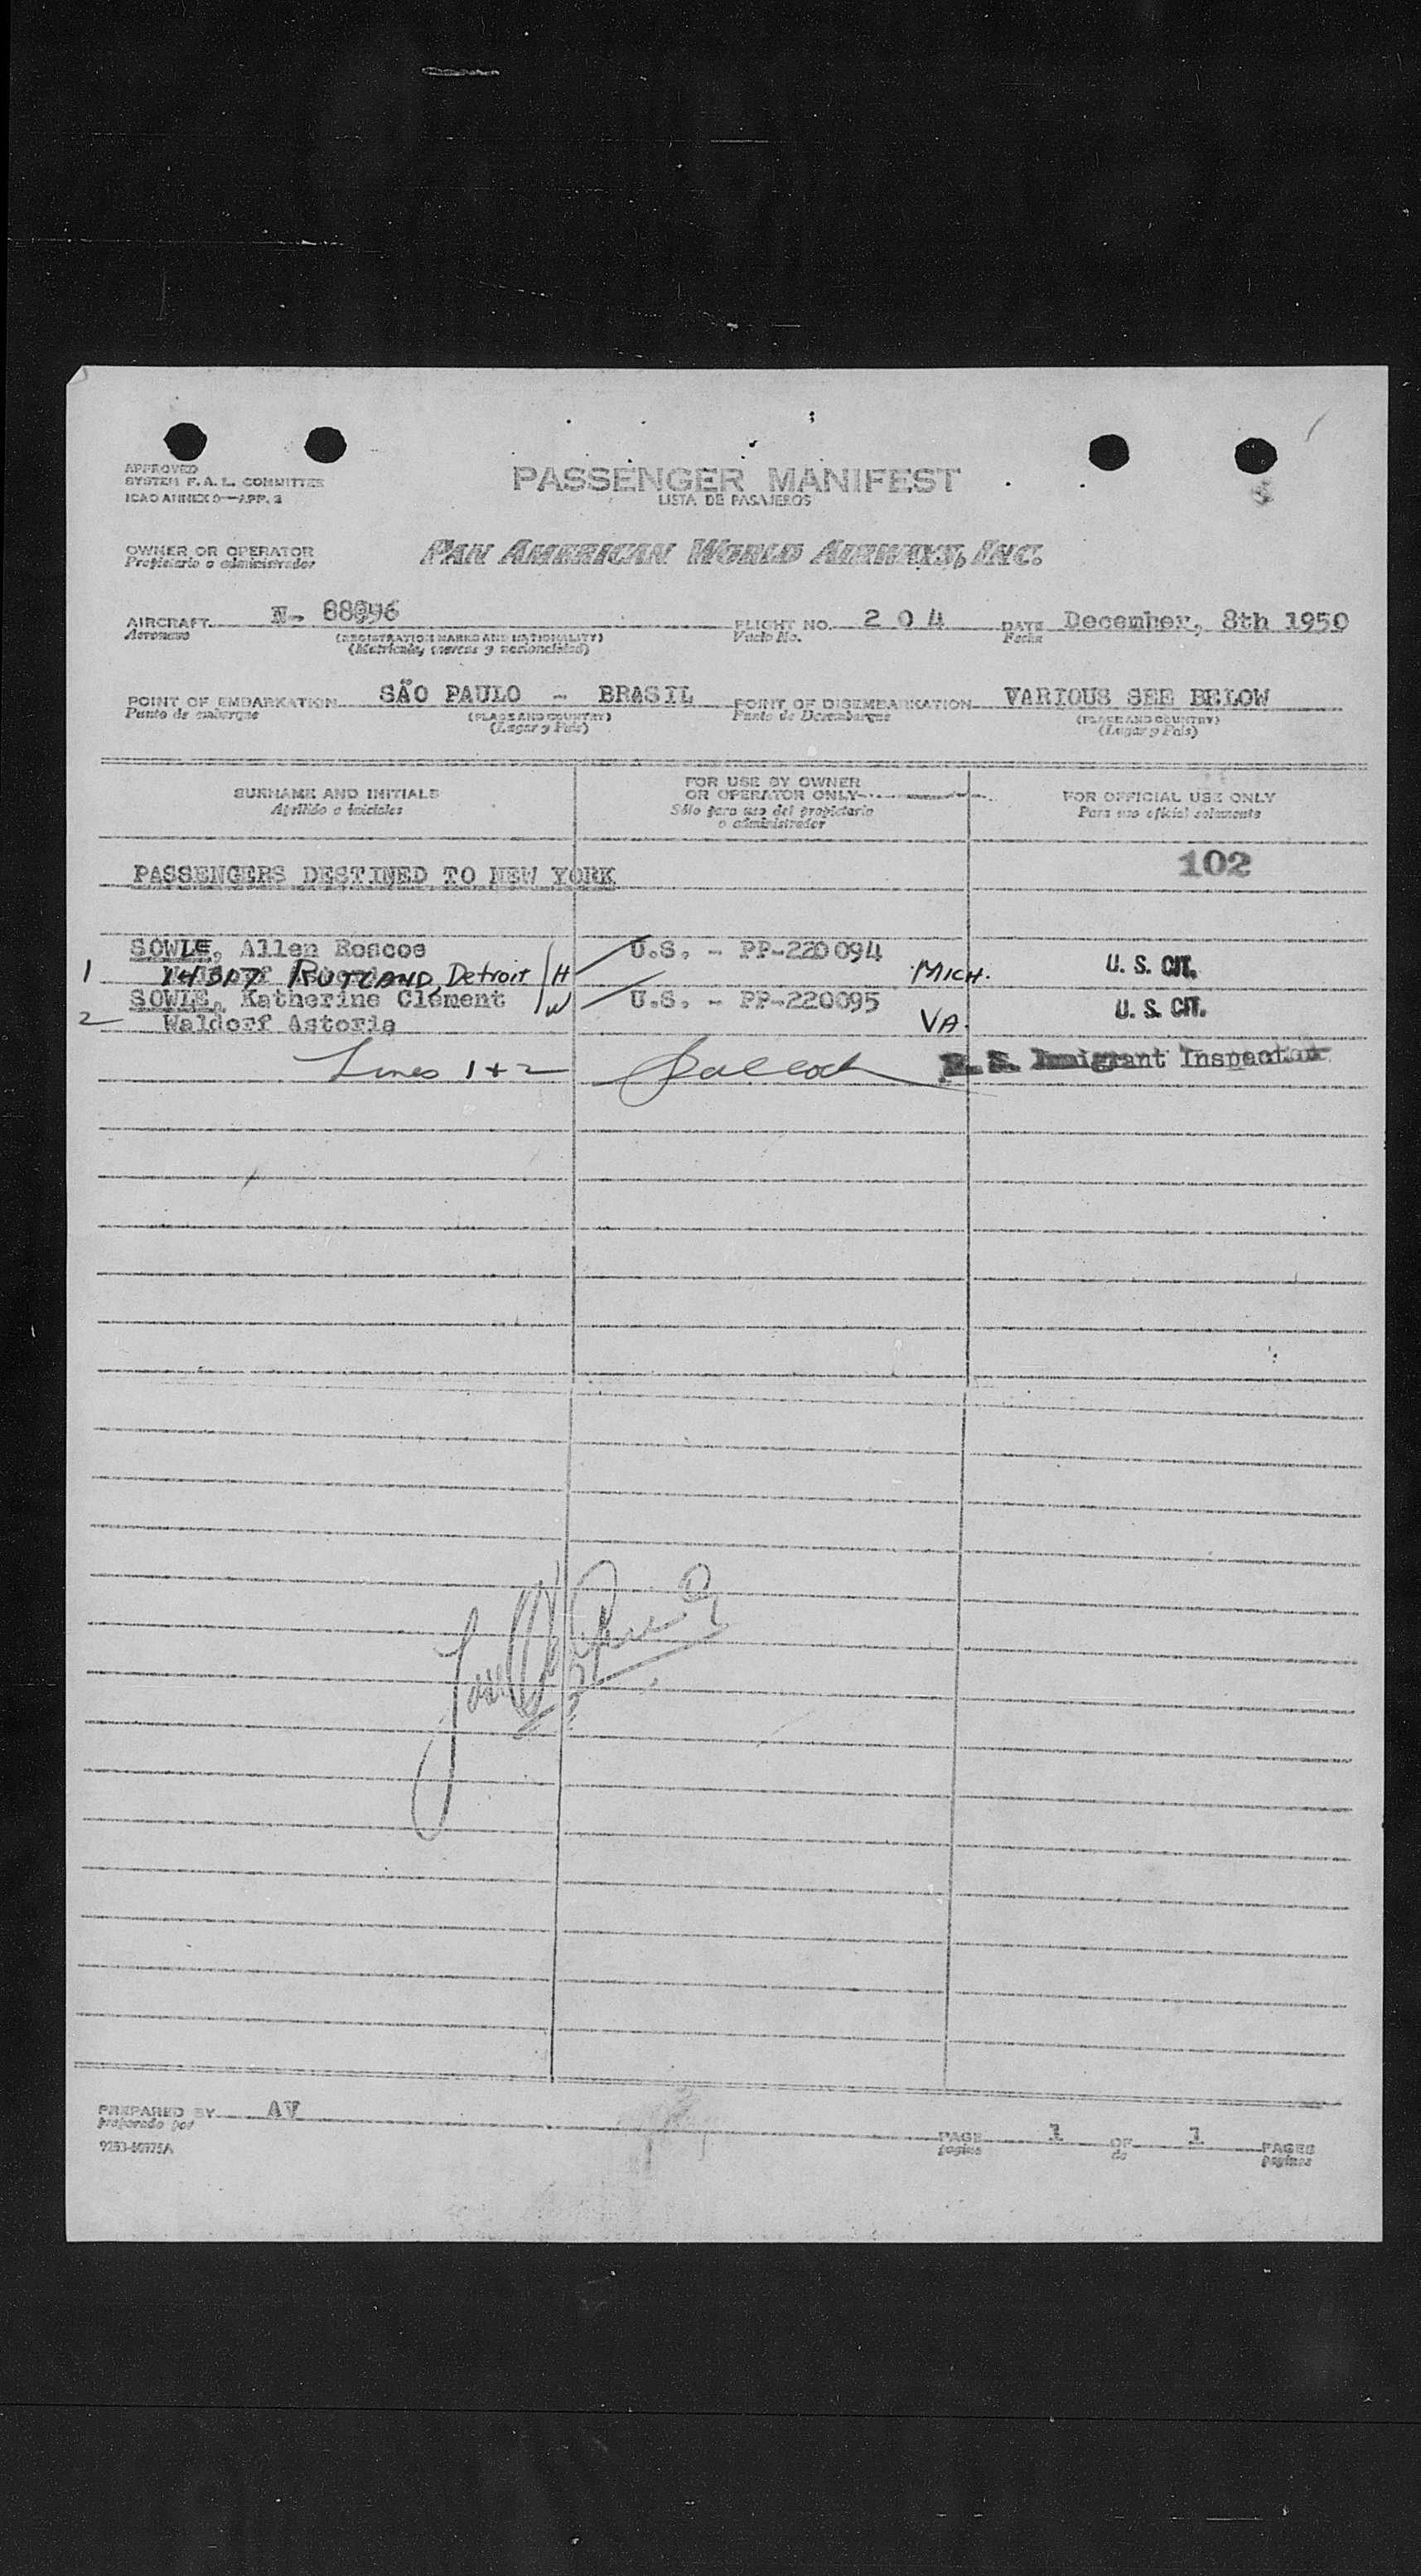 APPROVED
SYSTEM F. A. L. COMMITTEE
ICAO ANNEX 9—APP. 3
PASSENGER MANIFEST
LISTA DE PASAJEROS
OWNER OR OPERATOR
Propietario o administrador
PAN AMERICAN WORLD AIRWAYS, INC.
AIRCRAFT N- 88896 FLIGHT NO. 2 0 4 DATE December, 8th 1950
Aeronave (REGISTRATION MARKS AND NATIONALITY) Vuelo No. Fecha
(Matrícula, marcas y nacionalidad)
POINT OF EMBARKATION SÃO PAULO - BRASIL POINT OF DISEMBARKATION VARIOUS SEE BELOW
Punto de embarque (PLACE AND COUNTRY) Punto de Desembarque (PLACE AND COUNTRY)
(Lugar y País) (Lugar y País)
SURNAME AND INITIALS
Apellido e iniciales
FOR USE BY OWNER
OR OPERATOR ONLY
Sólo para uso del propietario
o administrador
FOR OFFICIAL USE ONLY
Para uso oficial solamente
PASSENGERS DESTINED TO NEW YORK 102
SOWLE, Allen Roscoe U.S. - PP-220094
1 RUTLAND, Detroit H MICH. U. S. CIT.
SOWLE, Katherine Clement W U.S. - PP-220095 U. S. CIT.
2 Waldorf Astoria VA.
Lines 1 + 2 U. S. Immigrant Inspector
PREPARED BY AV
preparado por
PAGE 1 OF 1 PAGES
página de páginas